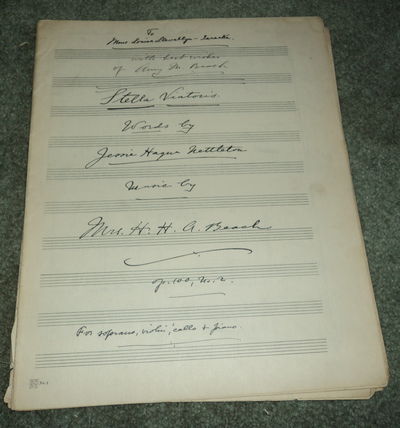 To
Mme. Louise Llewellyn-Jarecka
with best wishes
of Amy M. Beach
Stella Viatoris
Words by
Jessie Hague Nettleton
Music by
Mrs. H. H. A. Beach
op. 100, no. 2.
For soprano, violin, cello & piano.